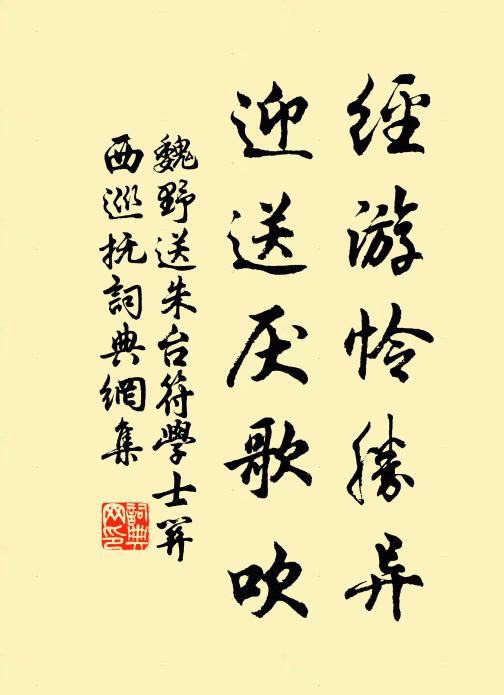 經游怜勝异
迎送厌歌吹
魏野送朱台符學士罢
西巡抚詞典網集
詞典
网印